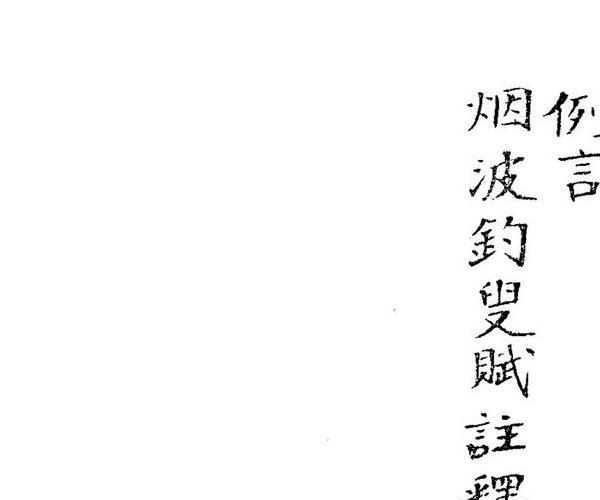 例言
烟波釣叟賦註釋